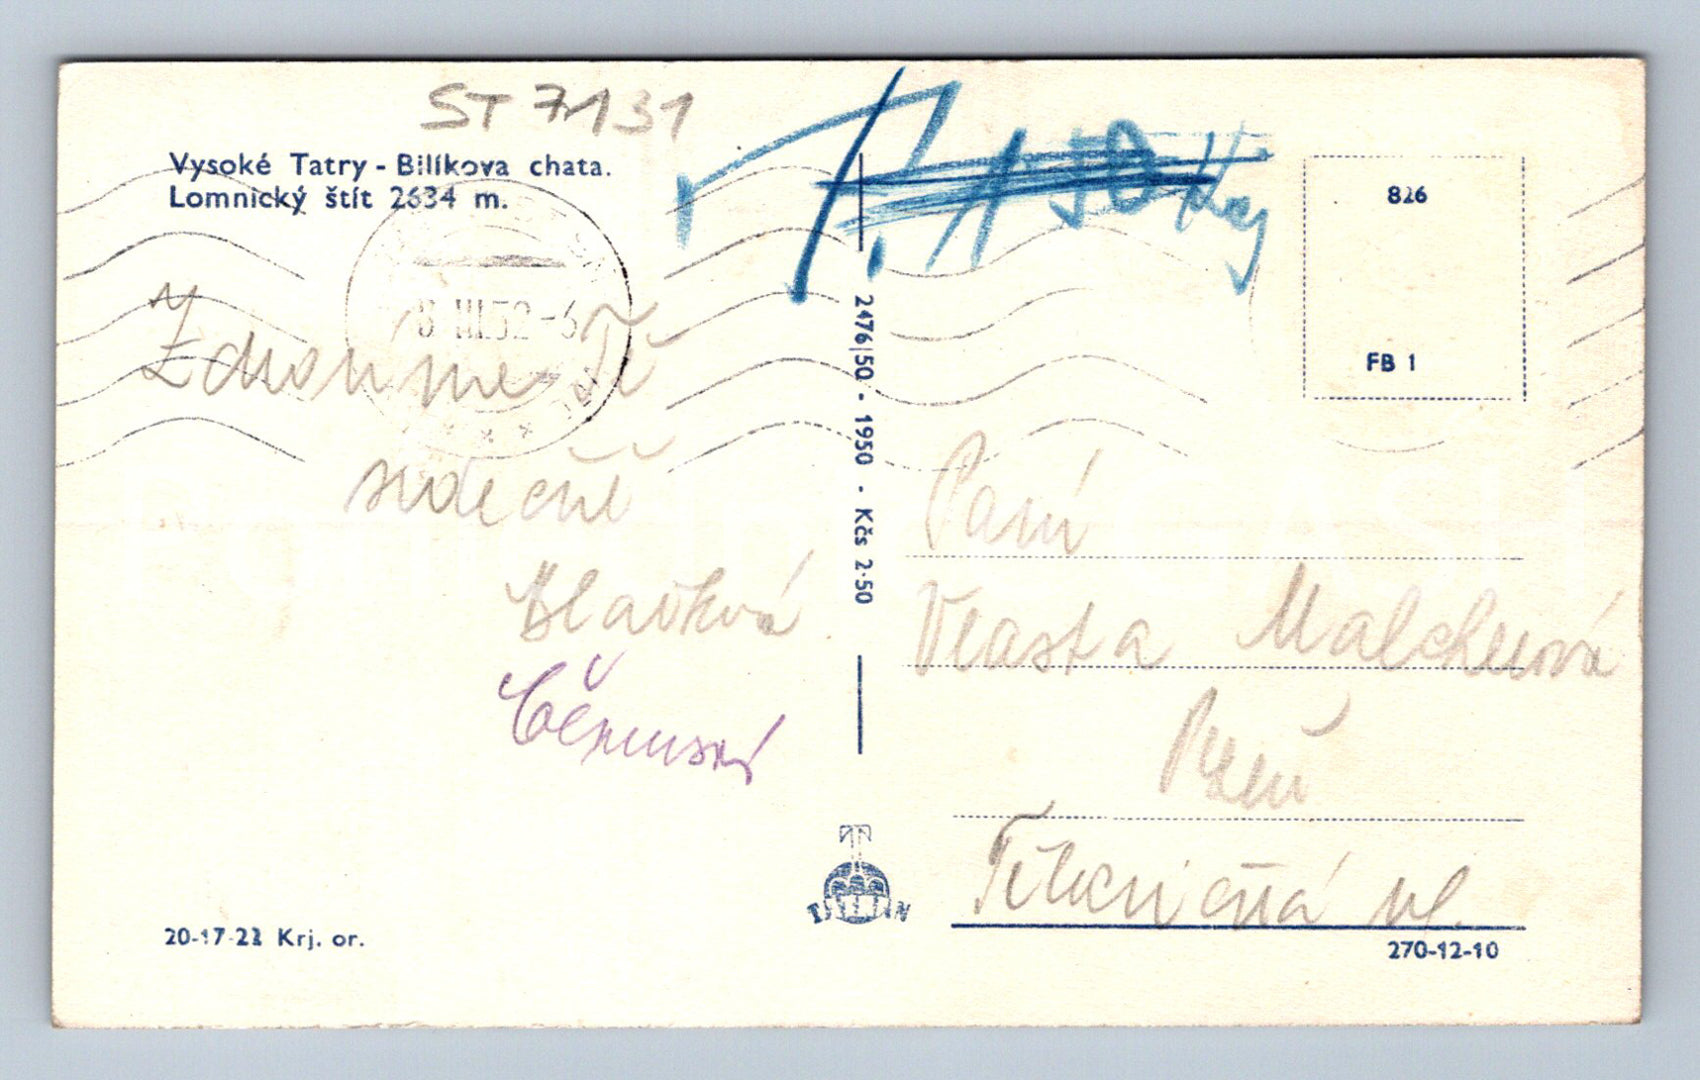 ST 7131
Vysoké Tatry - Bilíkova chata.
Lomnický štít 2634 m.
826
FB 1
8 III 52-6
Zdravíme Tě
srdečně
Hlavková
2476|50 - 1950 - Kčs 2·50
Paní
Vlasta
Plzeň
ul.
TATRAN
20-17-22 Krj. or.
270-12-10